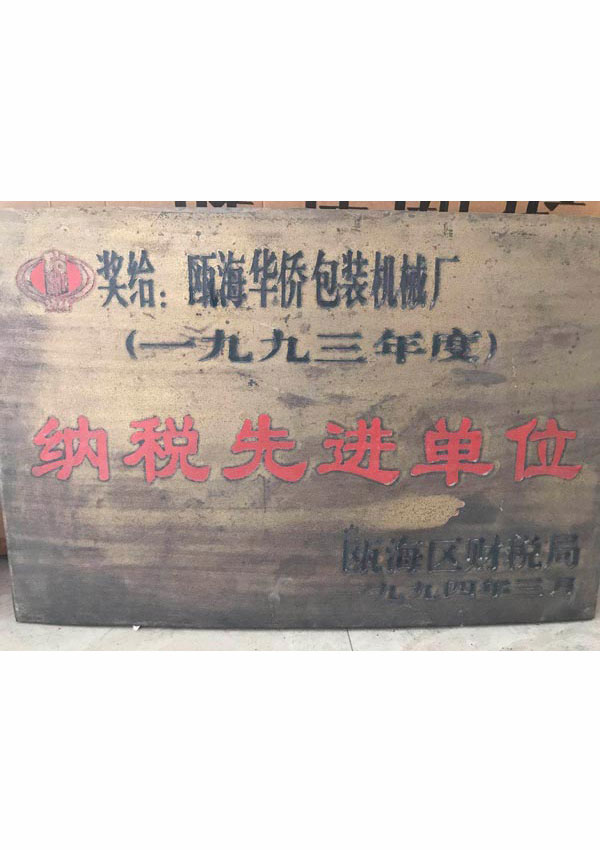 奖给：瓯海华侨包装机械厂
（一九九三年度）
纳税先进单位
瓯海区财税局
一九九四年三月